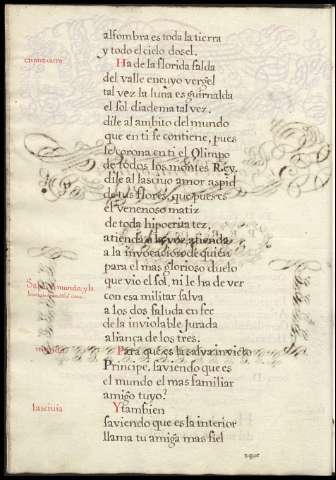 alfombra es toda la tierra
y todo el cielo dosel.
Ha de la florida falda
del valle en cuyo vergel
tal vez la luna es guirnalda
el sol diadema tal vez,
dile al ambito del mundo
que en ti se contiene, pues
se corona en ti el Olimpo
de todos los montes Rey.
dile al lasciuo amor aspid
de tus flores, que pues es
el venenoso matiz
de toda hipocrita tez,
atienda a la voz, atienda
a la invocacion de quien
para el mas glorioso duelo
que vio el sol, ni le ha de ver
con esa militar salva
a los dos saluda en fee
de la inviolable jurada
aliança de los tres.
mundo Para que es la salva invicto
Principe, saviendo que es
el mundo el mas familiar
amigo tuyo?
lasciuia Y tambien
saviendo que es la interior
llama tu amiga mas fiel
sigue